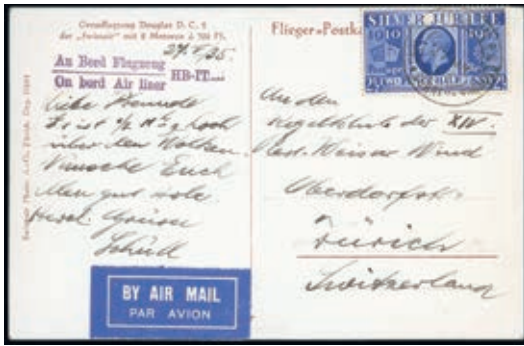 Grossflugzeug Douglas D. C. 2
der „Swissair" mit 2 Motoren à 700 PS.
27.V.35.
An Bord Flugzeug
On bord Air liner
HB-IT
Liebe Freunde
Es ist ½ 11 Uhr hoch
über den Wolken.
Wünsche Euch
Allen gut Hole.
Herzl. Grüsse
Schüll
Flieger-Postka
SILVER JUBILEE
1910 1935
An den
Kegelklub der XIV.
Rest. Weisser Wind
Oberdorfstr.
Zürich
Switzerland
BY AIR MAIL
PAR AVION